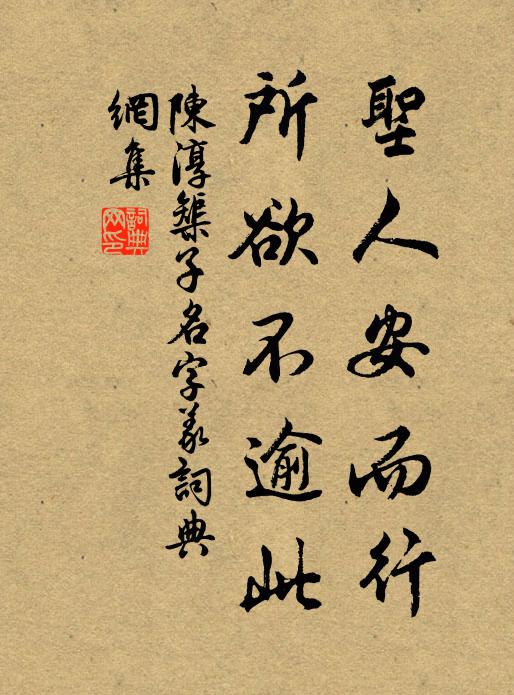 聖人安而行
所欲不逾此
陳淳榘子名字義詞典
網集
詞典
网印